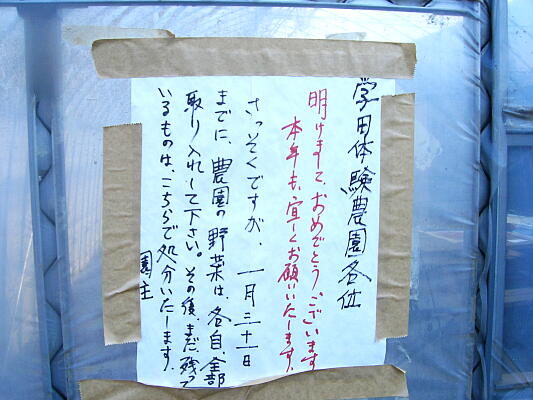 学田体験農園各位
明けまして、おめでとうございます
本年も、宜しくお願いいたします。
さっそくですが、一月三十一日
までに、農園の野菜は、各自、全部
取り入れして下さい。その後、まだ、残って
いるものは、こちらで処分いたします。
園主